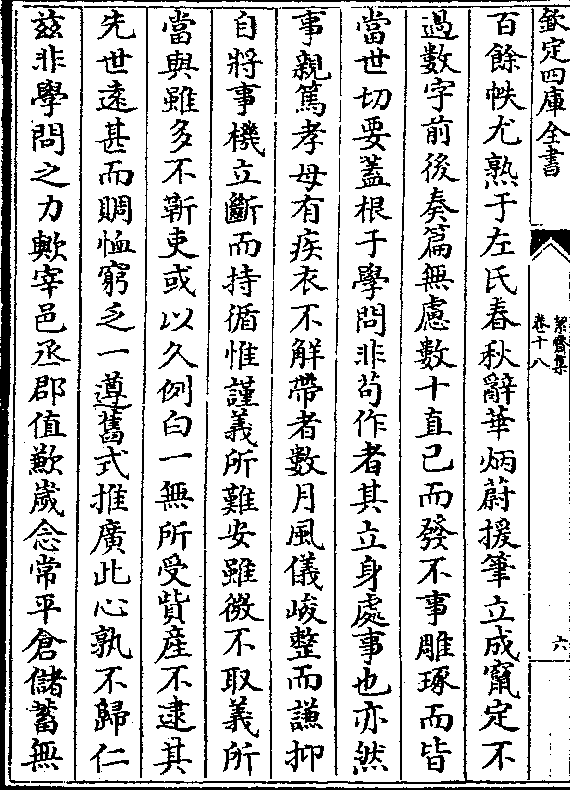 欽定四庫全書
絜齋集
卷十八
六
百餘帙尤熟于左氏春秋辭華炳蔚援筆立成竄定不
過數字前後奏篇無慮數十直已而發不事雕琢而皆
當世切要蓋根于學問非苟作者其立身處事也亦然
事親篤孝母有疾衣不解帶者數月風儀峻整而謙抑
自將事機立斷而持循惟謹義所難安雖微不取義所
當與雖多不靳吏或以久例白一無所受貲產不逮其
先世遠甚而賙恤窮乏一遵舊式推廣此心孰不歸仁
兹非學問之力歟宰邑丞郡值歉歲念常平倉儲蓄無